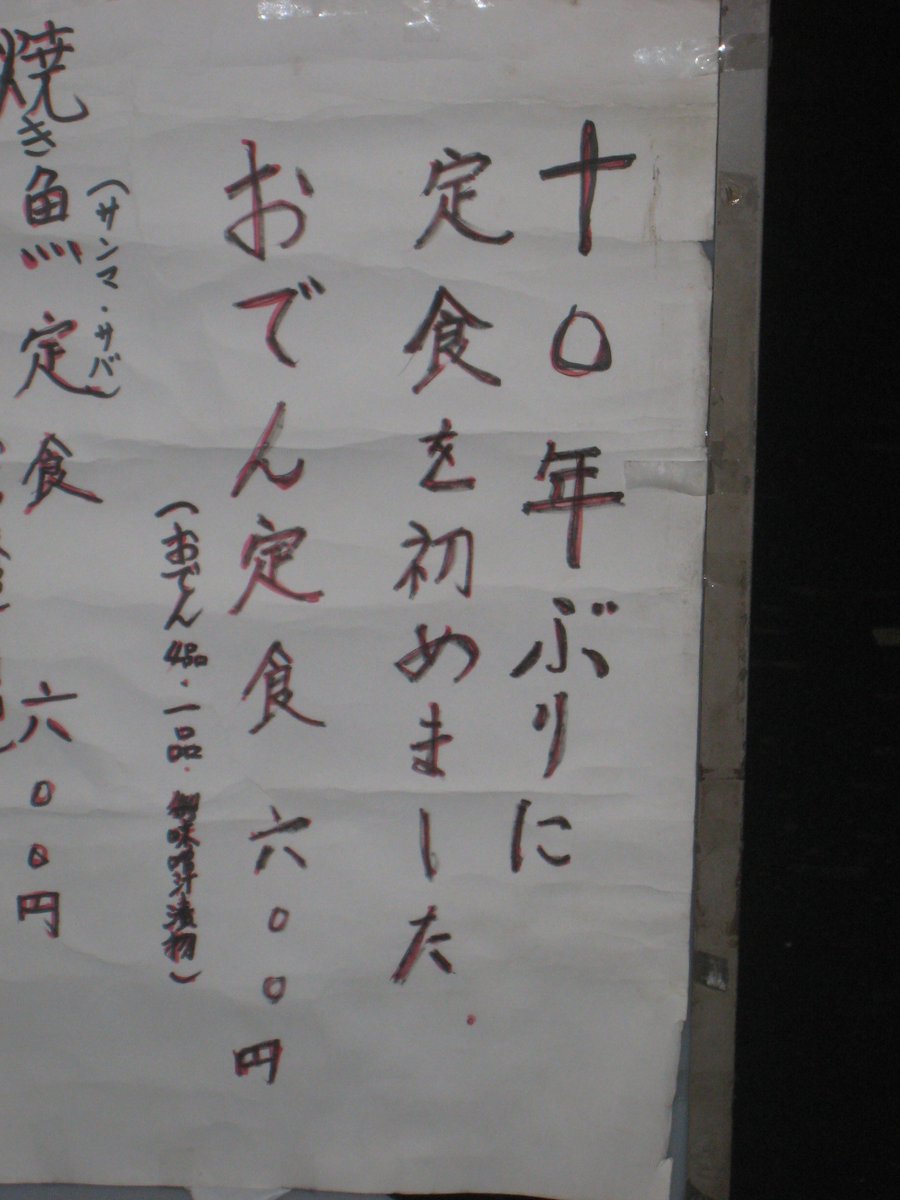 十〇年ぶりに
定食を初めました.
おでん定食 六〇〇円
(おでん4品・一品・御味噌汁漬物)
(サンマ・サバ)
焼き魚定食 六〇〇円